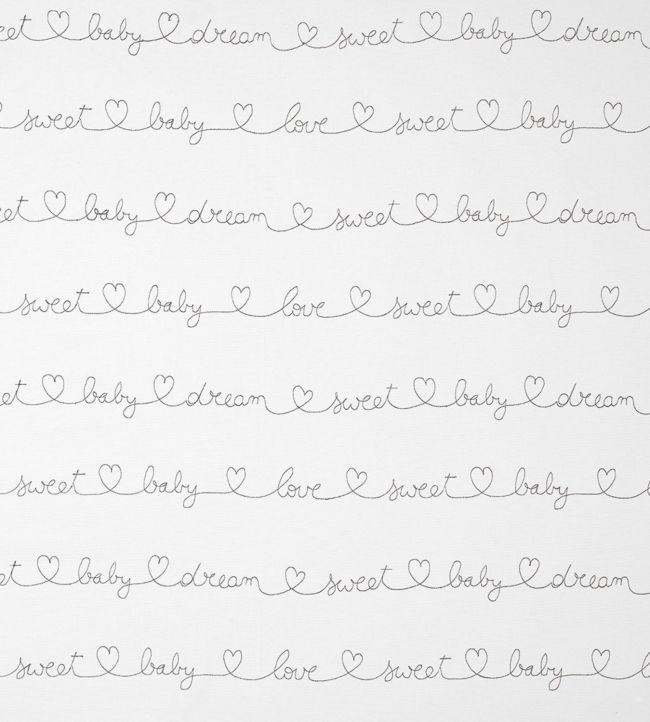 eet baby dream sweet baby dream
sweet baby love sweet baby
et baby dream sweet baby dream
sweet baby love sweet baby
et baby dream sweet baby dream
sweet baby love sweet baby
et baby dream sweet baby dream
sweet baby love sweet baby